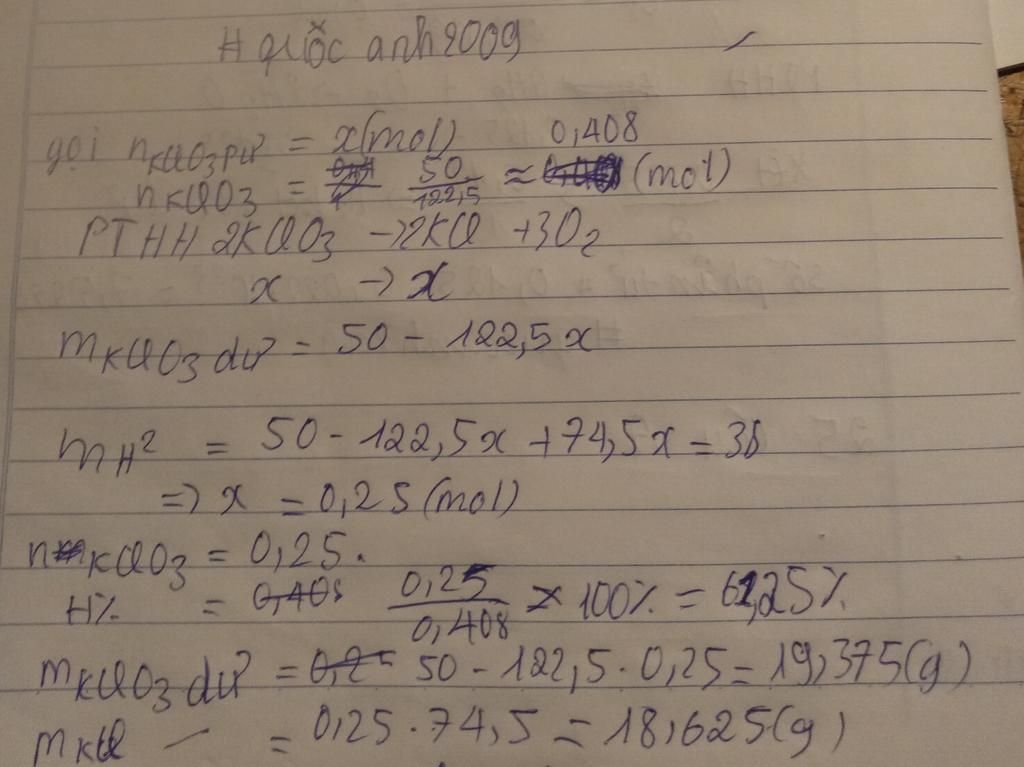 # quốc anh 2009
gọi nKClO3 pư = x(mol) 0,408
nKClO3 = 50/122,5 ≈ (mol)
PTHH 2KClO3 → 2KCl + 3O2
x → x
mKClO3 dư = 50 - 122,5x
mH² = 50 - 122,5x + 74,5x = 38
=> x = 0,25 (mol)
nKClO3 = 0,25.
H% = 0,408 0,25/0,408 × 100% = 61,25%
mKClO3 dư = 0,25 50 - 122,5 . 0,25 = 19,375(g)
mKCl = 0,25 . 74,5 = 18,625(g)